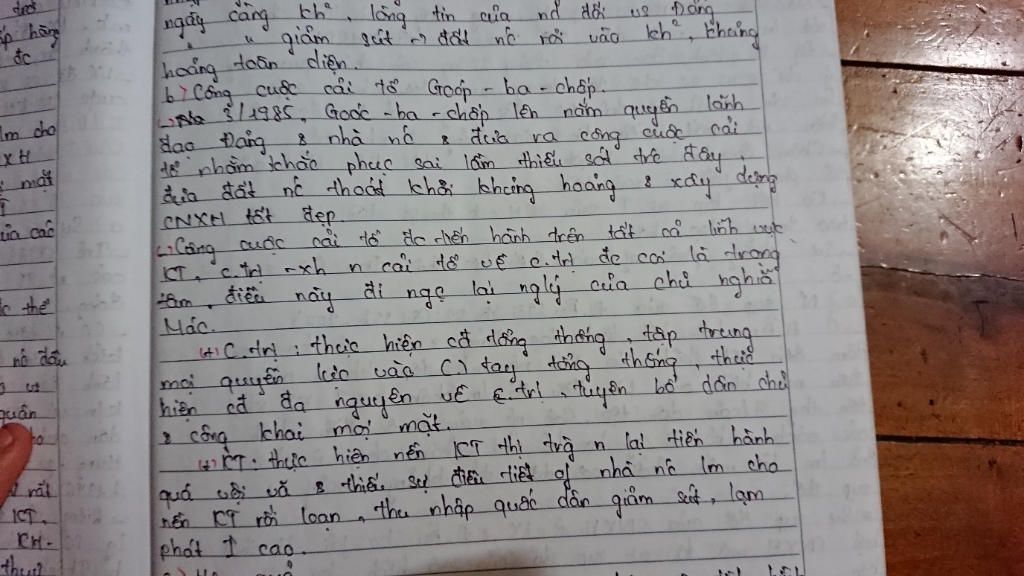 ngày càng kh², lòng tin của nd đối vs Đảng
" " giảm sút → đất nc rơi vào kh², khủng
hoảng toàn diện.
b) Công cuộc cải tổ Goóp-ba-chốp.
3/1985, Goóc-ba-chốp lên nắm quyền lãnh
đạo Đảng & nhà nc & đưa ra công cuộc cải
tổ nhằm khắc phục sai lầm thiếu sót trc đây,
đưa đất nc thoát khỏi khủng hoảng & xây dựng
CNXH tốt đẹp.
Công cuộc cải tổ đc tiến hành trên tất cả lĩnh vực
KT, c.trị -xh n cải tổ về c.trị đc coi là trọng
tâm, điều này đi ngc lại nglý của chủ nghĩa
Mác.
(+) C.trị: thực hiện cđ tổng thống, tập trung
mọi quyền lực vào ( ) tay tổng thống, thực
hiện cđ đa nguyên về c.trị, tuyên bố dân chủ
& công khai mọi mặt.
(+) KT: thực hiện nền KT thị trg n lại tiến hành
quá vội vã & thiếu sự điều tiết of nhà nc lm cho
nền KT rối loạn, thu nhập quốc dân giảm sút, lạm
phát ↑ cao.
áp hàng
đc
lm cho
XH
mặt
của các
c thể
nc đầu
quân
rất
KT.
KH.